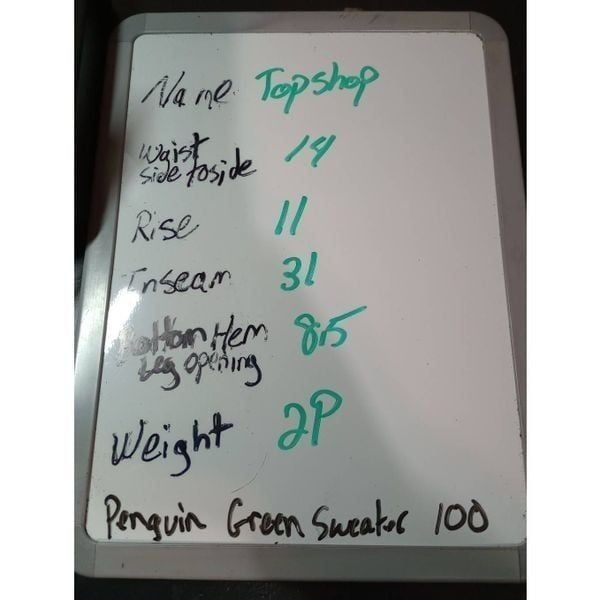 Name Topshop
Waist 14
side to side
Rise 11
Inseam 31
Bottom Hem 8.5
Leg opening
Weight 2P
Penguin Green Sweater 100